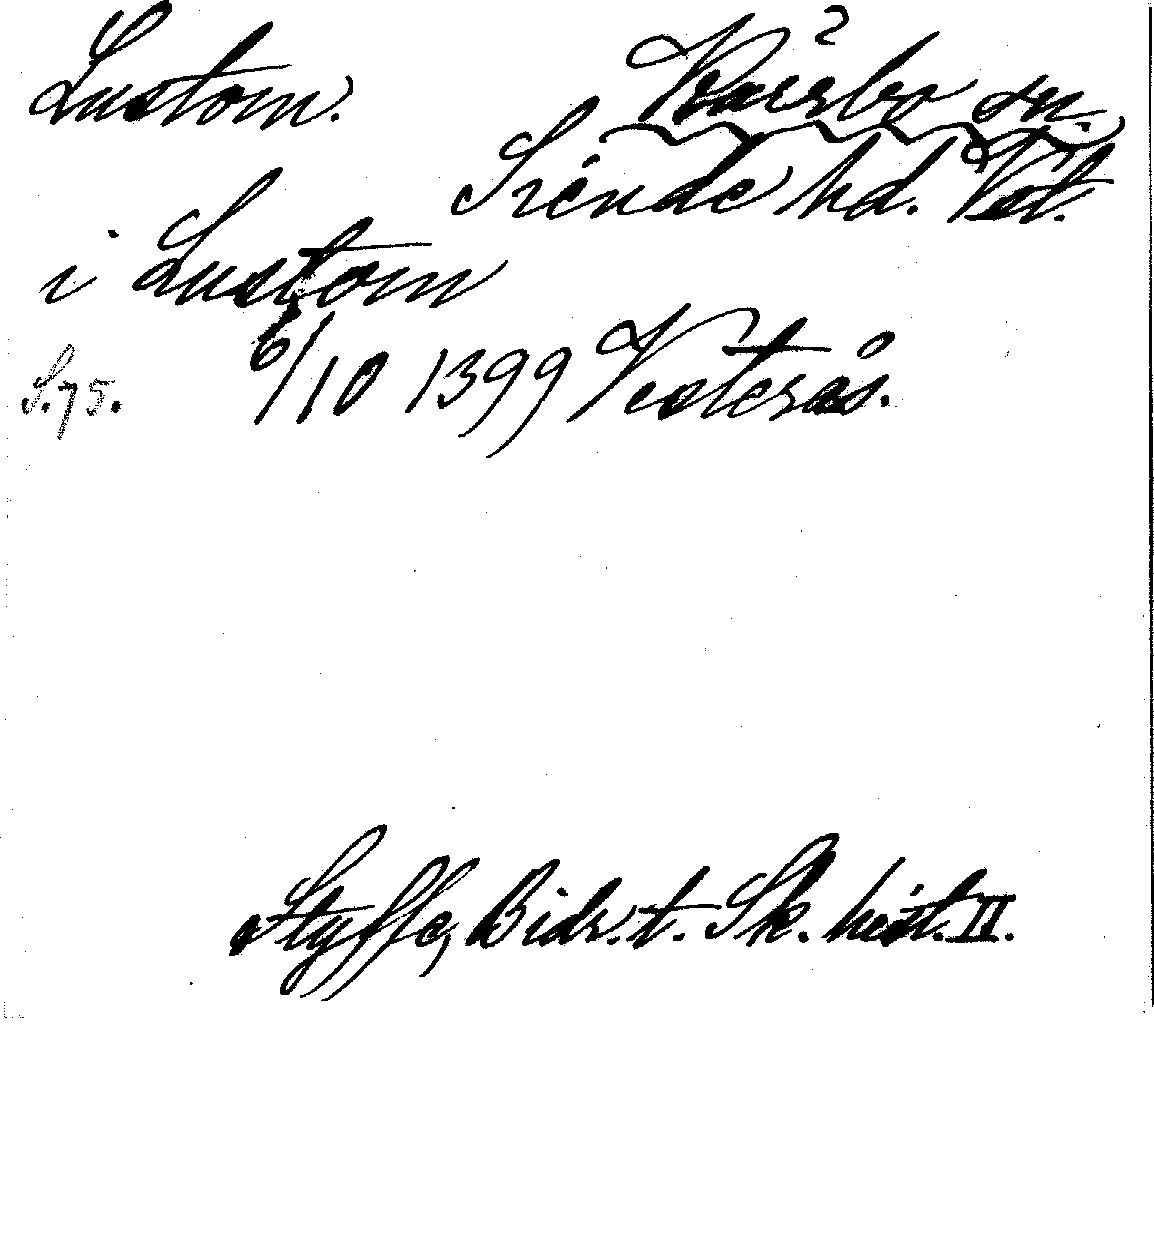 Lustom. Kärrbo sn.
Siende hd.
i Lustom
S. 75. 6/10 1399 Vesterås.
Styffe, Bidr. t. Sk. hist. II.